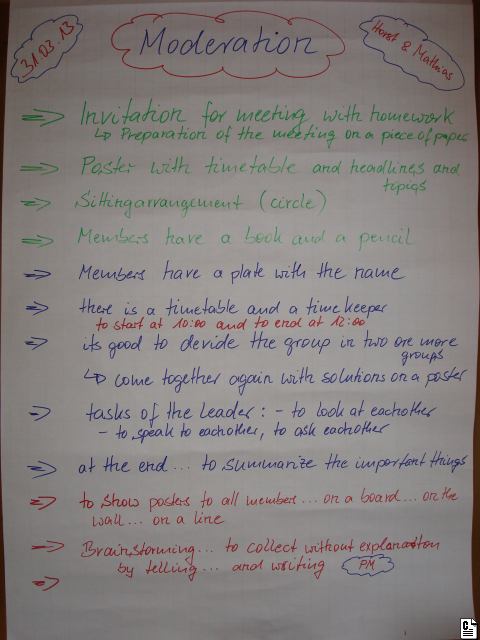 31.03.13
Moderation
Horst & Mathias
Invitation for meeting with homework
Preparation of the meeting on a piece of paper
Poster with timetable and headlines and
topics
Sittingarrangement (circle)
Members have a book and a pencil
Members have a plate with the name
there is a timetable and a time keeper
to start at 10:00 and to end at 12:00
its good to devide the group in two ore more
groups
come together again with solutions on a poster
tasks of the leader : - to look at eachother
- to speak to eachother, to ask eachother
at the end ... to summarize the important things
to show posters to all members ... on a board ... on the
wall ... on a line
Brainstorming ... to collect without explanation
by telling ... and writing
PM